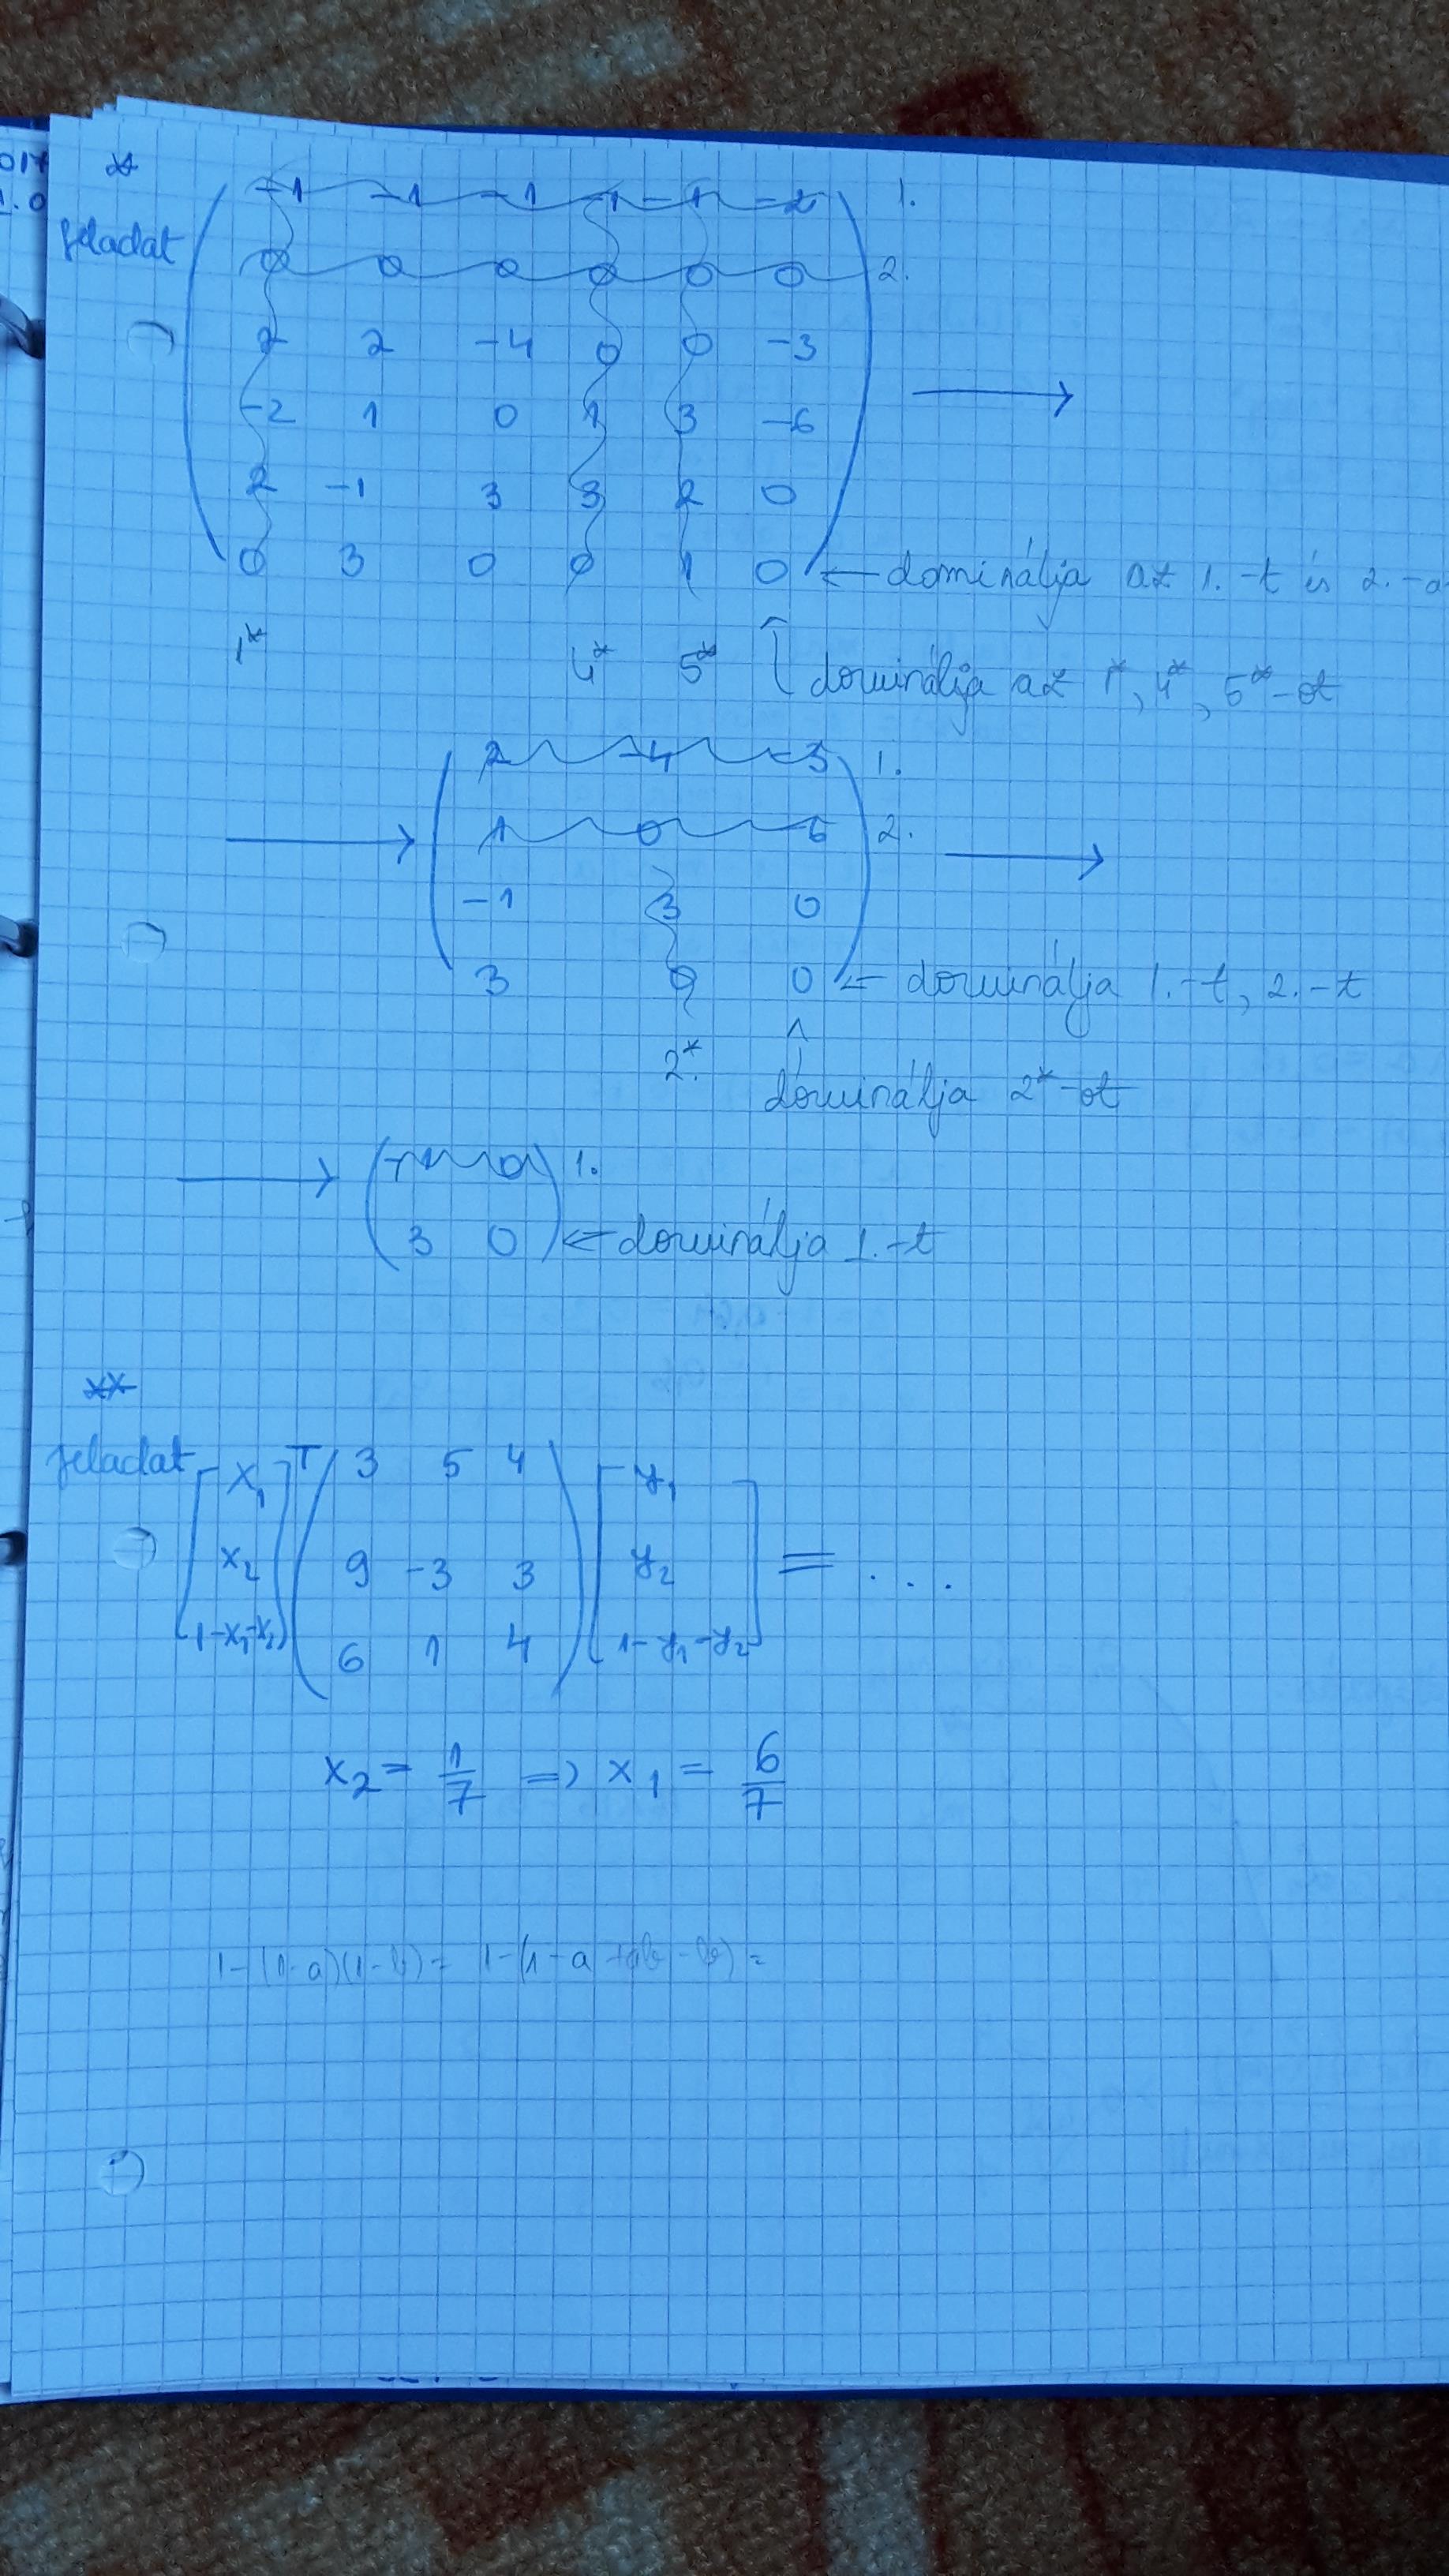 *
feladat
-1 -1 -1 -1 -1 -2 1.
0 0 0 0 0 0 2.
2 2 -4 0 0 -3
-2 1 0 1 3 -6
2 -1 3 3 2 0
0 3 0 0 1 0 ← dominálja az 1.-t és 2.-a
1* 4* 5* dominálja az 1*, 4*, 5*-ot
2 -4 -3 1.
→ 1 0 -6 2. →
-1 3 0
3 0 0 ← dominálja 1.-t, 2.-t
2.* dominálja 2*-ot
→ -1 0 1.
3 0 ← dominálja 1.-t
**
feladat
[x₁ x₂ 1-x₁-x₂]ᵀ
3 5 4
9 -3 3
6 1 4
[y₁ y₂ 1-y₁-y₂] = ...
x₂ = 1/7 ⇒ x₁ = 6/7
1-(1-a)(1-b) = 1-(1-a+ab-b) =